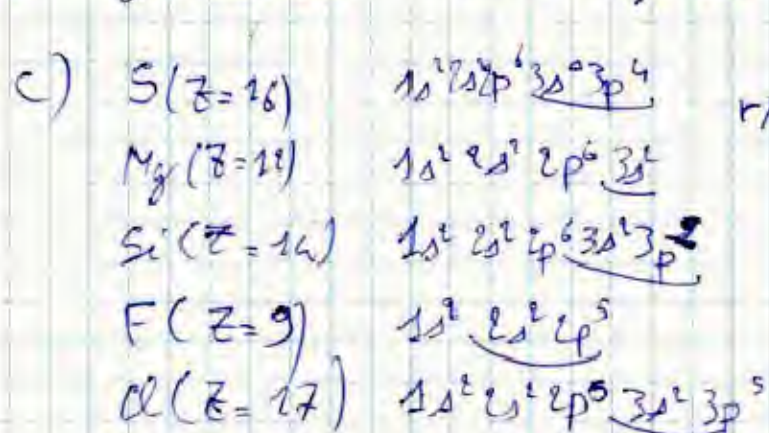 c) S(Z=16) 1s²2s²2p⁶3s²3p⁴
Mg(Z=12) 1s² 2s² 2p⁶ 3s²
Si(Z=14) 1s² 2s² 2p⁶ 3s² 3p²
F(Z=9) 1s² 2s² 2p⁵
Cl(Z=17) 1s² 2s² 2p⁵ 3s² 3p⁵